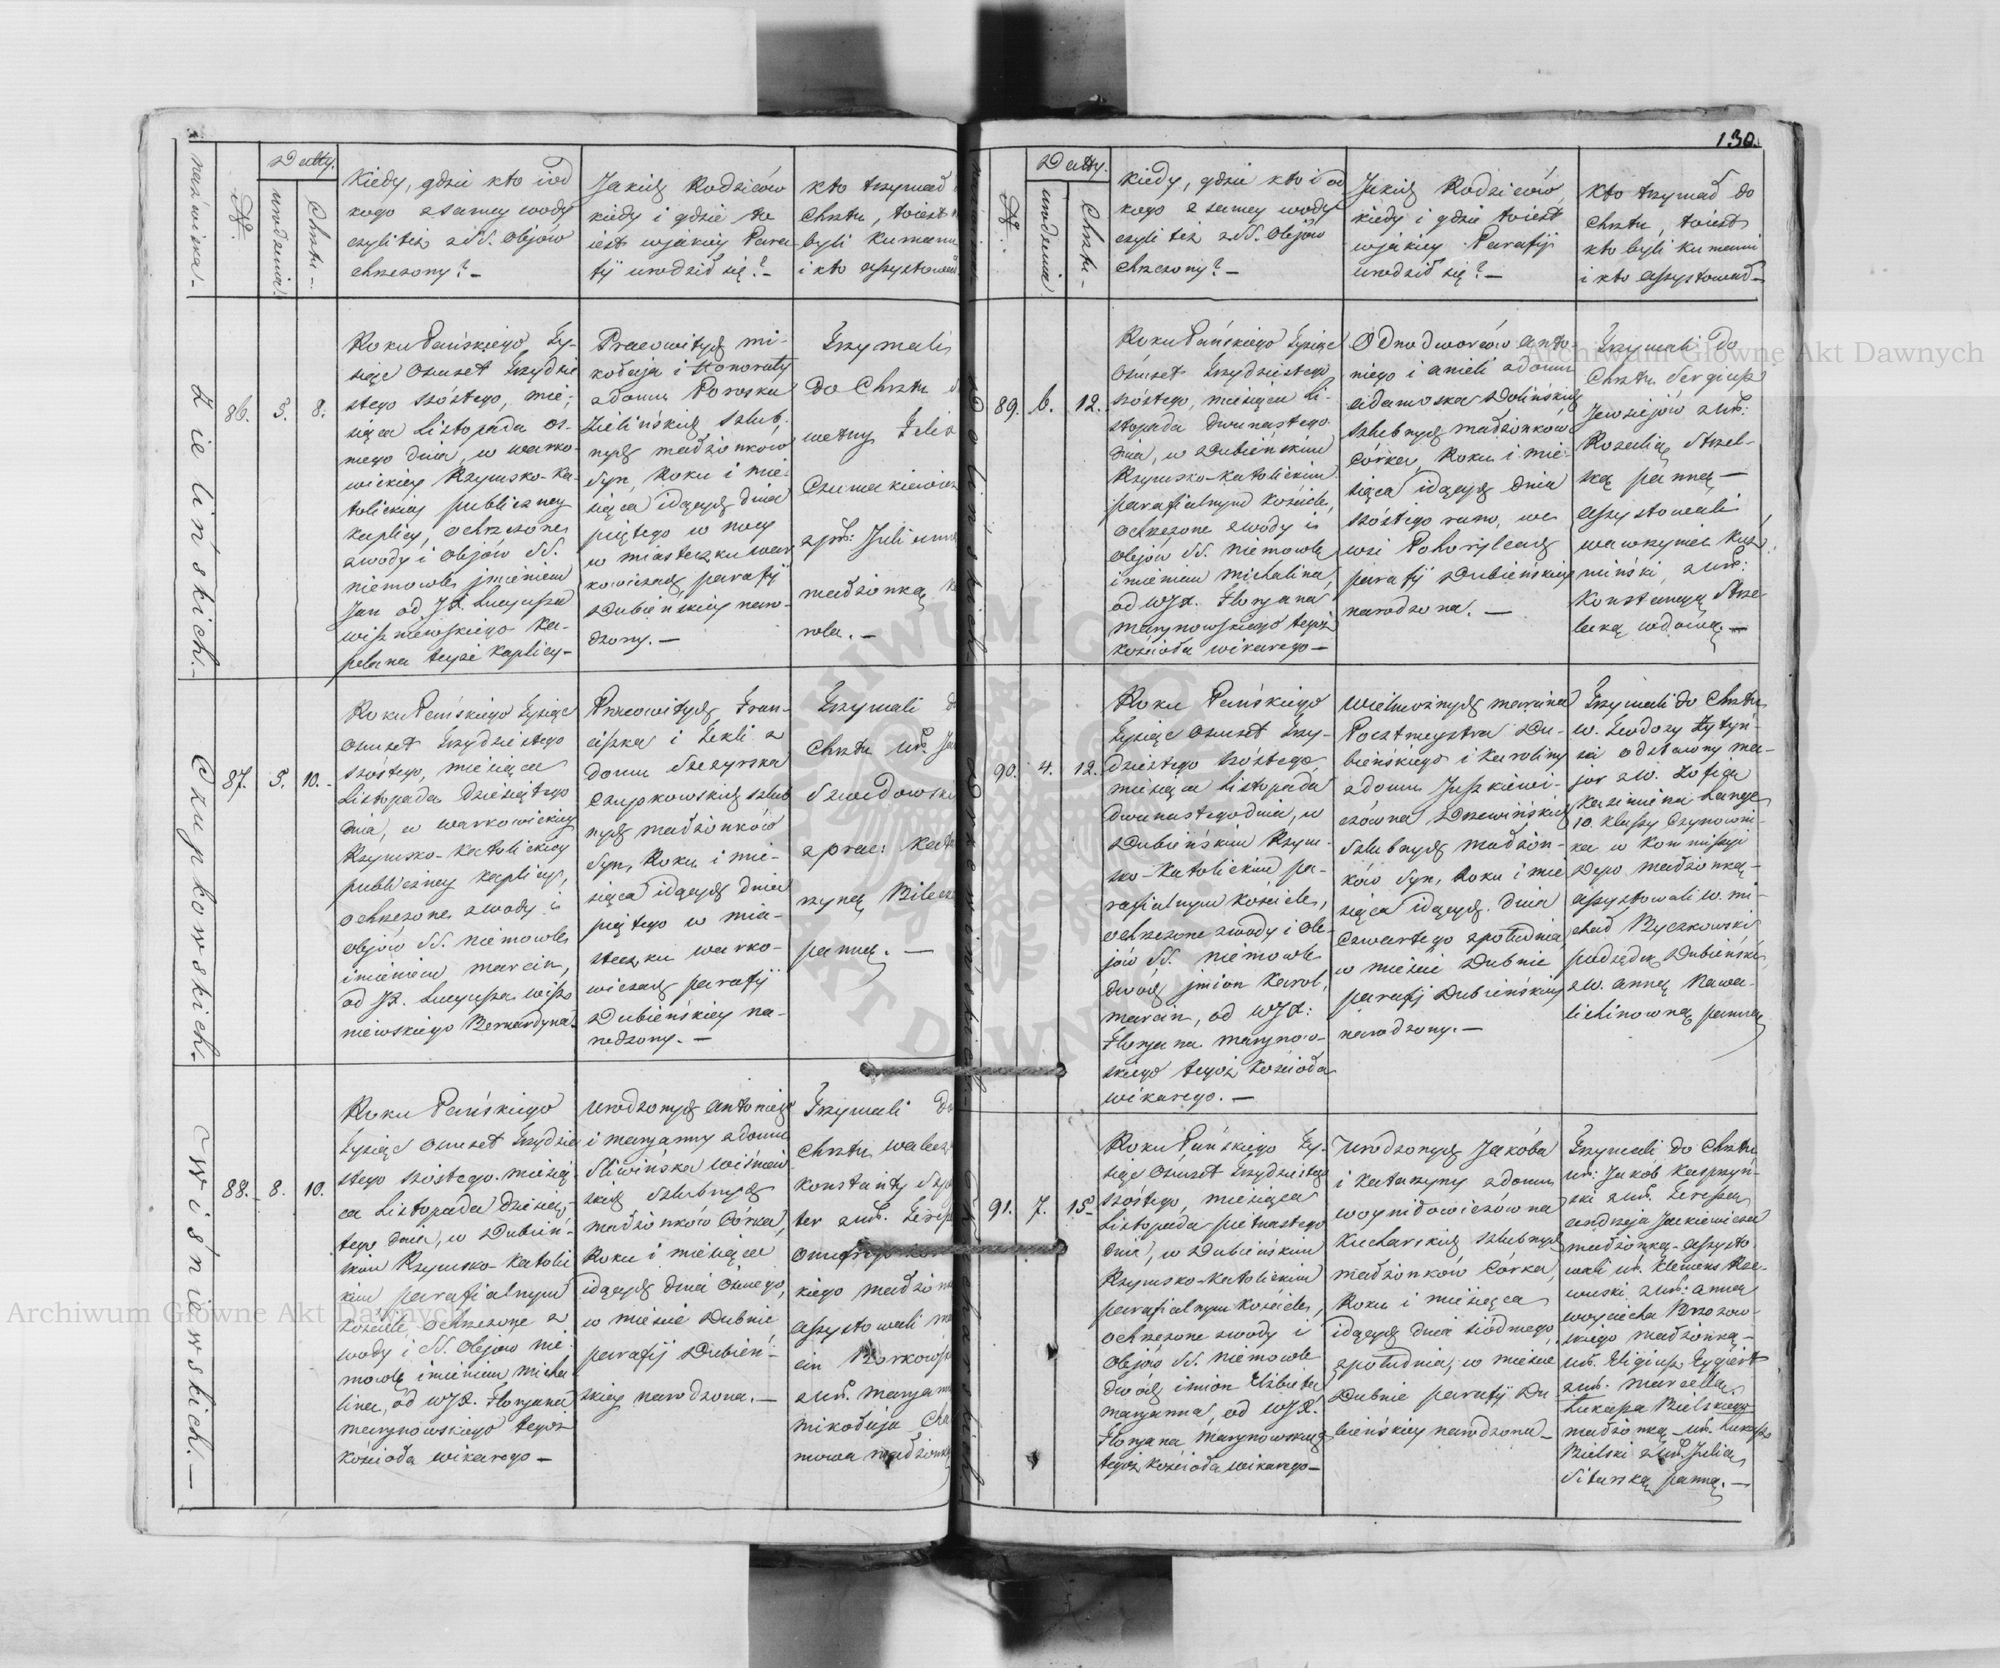 130.
nazwiska
№.
Datty.
urodzenia.
Chrztu –
Kiedy, gdzie kto i od
kogo z samey wody
czyli też z SS. Olejów
chrzczony? –
Jakich Rodziców
kiedy i gdzie to
iest w jakiey Para-
fij urodził się? –
Kto trzymał
Chrztu, toiest
byli Kumami
i kto assystował
Zielińskich.
86.
5.
8.
Roku Pańskiego Ty-
siąc Osmset Trzydzie
stego szóstego, mie-
siąca Listopada os-
mego dnia, w Warko-
wickiey Rzymsko-Ka-
tolickiey publiczney
kaplicy, ochrzczone
z wody i Olejów SS.
niemowle imieniem
Jan od JX. Lucyusza
Wiszniewskiego Ka-
pelana teyże Kaplicy –
Pracowitych Mi-
kołaja i Honoraty
z domu Poroska
Zielińskich, szlub-
nych małżonków
Syn, Roku i mie-
siąca idących dnia
piątego w nocy
w miasteczku War
kowiczach, parafij
Dubieńskiey naro-
dzony. –
Trzymali
do Chrztu
uczny Felix
Czumakiewicz
z pra: Julianną
małżonką
rola. –
Czupkowskich.
87.
5.
10. –
Roku Pańskiego Tysiąc
osmset Trzydziestego
szóstego, miesiąca
Listopada dziesiątego
dnia, w Warkowickiey
Rzymsko-Katolickiey
publiczney kaplicy,
ochrzczone z wody i
olejów SS. niemowle
imieniem Marcin,
od JX. Lucyusza Wisz
niewskiego Bernardyna.
Pracowitych Fran-
ciszka i Tekli z
domu Szczyrska
Czupkowskich szlub
nych małżonków
Syn, Roku i mie-
siąca idących dnia
piątego w mia-
steczku Warko-
wiczach parafij
Dubieńskiey na-
rodzony. –
Trzymali do
Chrztu Ur. Jan
Szwedowski
z prac: Kata
rzyną
panną. –
Wiśniewskich. –
88. –
8.
10.
Roku Pańskiego
Tysiąc osmset Trzydzie
stego szóstego miesią
ca Listopada dziesią-
tego dnia, w Dubień-
skim Rzymsko-Katolic
kim parafialnym
kościele ochrzczone z
wody i SS. Olejów nie-
mowle imieniem Micha
lina, od WJX. Floryana
Marynowskiego tegoż
Kościoła wikarego –
Urodzonych Antoniego
i Maryanny z domu
Sliwińska Wiśniew
skich Szlubnych
małżonków Córka,
Roku i miesiąca
idących dnia Osmego,
w mieście Dubnie
parafij Dubień-
skiey narodzona. –
Trzymali do
Chrztu
Konstanty
ter z Ur. Teres
Onufrego
kiego małżonk
Assystowali Mar
cin Borkowski
z Ur. Maryann
Mikołaja
nowa małżonk
nazwiska
№.
Datty.
urodzenia
Chrztu –
Kiedy, gdzie kto i od
kogo z samey wody
czyli też z SS. Olejów
Chrzczony? –
Jakich Rodziców,
kiedy i gdzie toiest
w jakiey Parafij
urodził się? –
Kto trzymał do
Chrztu, toiest
kto byli Kumami
i kto assystował –
Dolińskich
89.
6.
12.
Roku Pańskiego Tysiąc
Osmset Trzydziestego
szóstego, miesiąca Li-
stopada dwunastego
dnia, w Dubieńskim
Rzymsko-Katolickim
parafialnym kościele,
ochrzczone z wody i
olejów SS. niemowle
imieniem Michalina,
od WJX. Floryana
Marynowskiego tegoż
kościoła wikarego –
Odnodworców Anto-
niego i Anieli z domu
Adamoska Dolińskich
szlubnych małżonków
Córka, Roku i mie-
siąca idących dnia
szóstego rano, we
wsi Pohorylcach
parafij Dubieńskiey
narodzona. –
Trzymali do
Chrztu Sergiusz
Jewsiejów z Ur:
Rozalią Strzel-
ską panną –
assystowali
Wawrzyniec Kuź-
miński, z Ur:
Konstancyą Strze-
lecką wdową. –
Drzewińskich
90.
4.
12.
Roku Pańskiego
Tysiąc osmset Trzy-
dziestego szóstego,
miesiąca Listopada
dwunastego dnia, w
Dubieńskim Rzym-
sko-Katolickim pa-
rafialnym kościele,
ochrzczone z wody i Ole-
jów SS. niemowle
dwóch imion Karol,
Marcin, od WJX:
Floryana Marynow-
skiego tegoż kościoła
wikarego. –
Wielmożnych Marcina
Pocztmeystra Du-
bieńskiego i Karoliny
z domu Juszkiewi-
czówna Drzewińskich
Szlubnych małżon-
ków Syn, Roku i mie
siąca idących dnia
Czwartego zpołudnia
w mieście Dubnie
parafij Dubieńskiey
narodzony. –
Trzymali do Chrztu
W. Teodozy Hytyń-
ski odstawny ma-
jor z W. Zofią
Kazimierza Lange
10. klassy Czynowni-
ka w Kommissyi
Depo małżonką –
assystowali W. Mi-
chał Ryczkowski
podsędek Dubieński,
z W. Anną Nawa-
lichinowną panną
Kucharskich
91.
7.
15 –
Roku Pańskiego Ty-
siąc Osmset Trzydziestego
szóstego, miesiąca
Listopada pietnastego
dnia, w Dubieńskim
Rzymsko-Katolickim
parafialnym kościele,
ochrzczone z wody i
Olejów SS. niemowle
dwóch imion Elżbieta
Maryanna, od WJX.
Floryana Marynowskiego
tegoż Kościoła wikarego –
Urodzonych Jakóba
i Katarzyny z domu
Woynidowiczówna
Kucharskich szlubnych
małżonków Córka,
Roku i miesiąca
idących dnia siódmego,
zpołudnia, w mieście
Dubnie parafij Du
bieńskiey narodzona –
Trzymali do Chrztu
Ur. Jakób Kasprzyń-
ski z Ur. Teressą
Andrzeja Jackiewicza
małżonką – assysto-
wali Ur. Klemens Rze-
wuski z Ur: Anną
Woyciecha Brzozow-
skiego małżonką –
Ur. Eligiusz Zygiert
z Ur. Marcellą
Łukasza Bielskiego
małżonką – Ur. Łukasz
Bielski z Ur. Julią
Sitarską panną. –
Archiwum Główne Akt Dawnych
Archiwum Główne Akt Dawnych